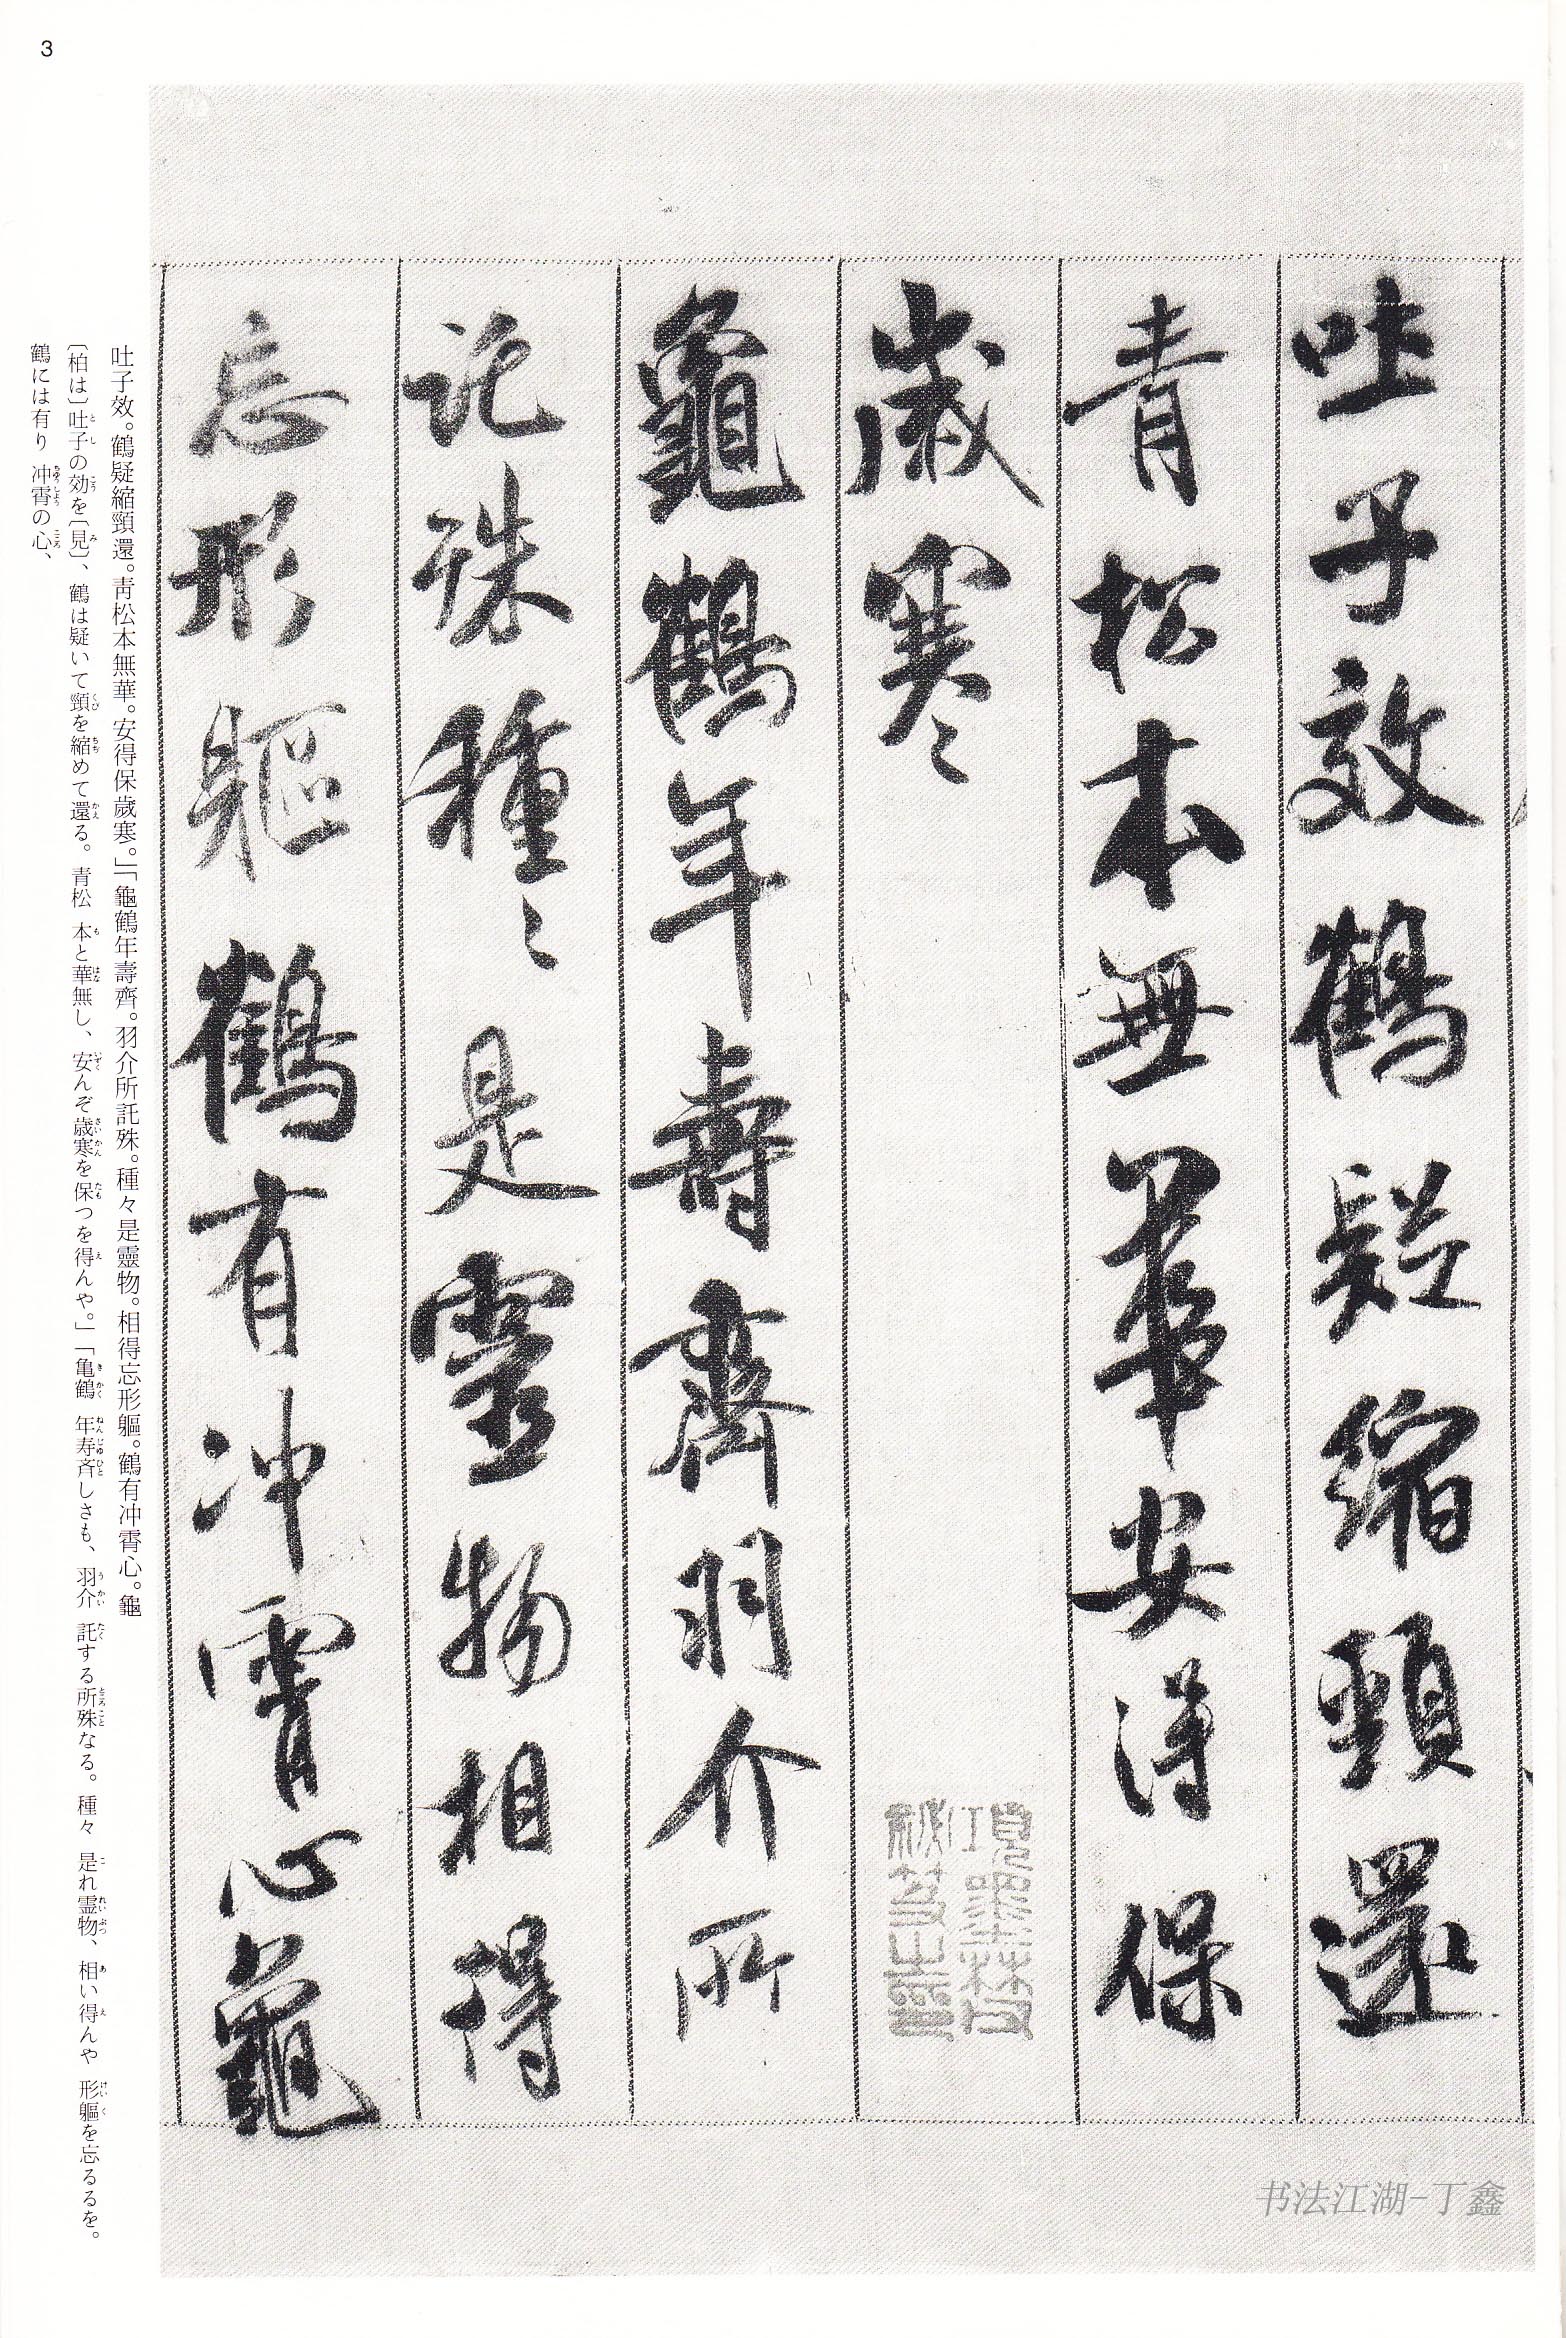 3
吐子效鶴疑縮頸還
青松本無華安得保
歲寒
龜鶴年壽齊羽介所
託殊種〻是靈物相得
忘形軀鶴有冲霄心龜
項墨林父
祕笈之印
吐子效。鶴疑縮頸還。靑松本無華。安得保歲寒。」「龜鶴年壽齊。羽介所託殊。種々是靈物。相得忘形軀。鶴有冲霄心。龜
〔柏は〕吐子の効を〔見〕、鶴は疑いて頸を縮めて還る。青松 本と華無し、安んぞ歳寒を保つを得んや。」「亀鶴 年寿斉しさも、羽介 託する所殊なる。種々 是れ霊物、相い得んや 形軀を忘るるを。
鶴には有り 冲霄の心、
书法江湖-丁鑫